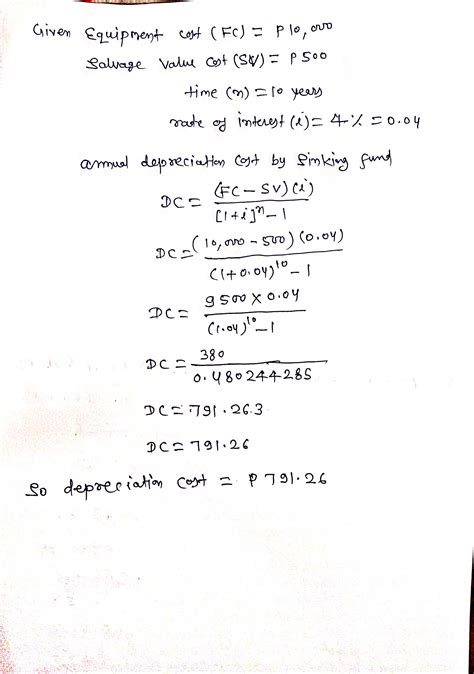 Given Equipment cost (FC) = P10,000
Salvage Value Cost (SV) = P500
time (n) = 10 years
rate of interest (i) = 4% = 0.04
annual depreciation cost by Sinking fund
DC = (FC - SV)(i) / [1+i]^n - 1
DC = (10,000 - 500)(0.04) / (1+0.04)^10 - 1
DC = 9500 x 0.04 / (1.04)^10 - 1
DC = 380 / 0.480244285
DC = 791.263
DC = 791.26
So depreciation cost = P791.26